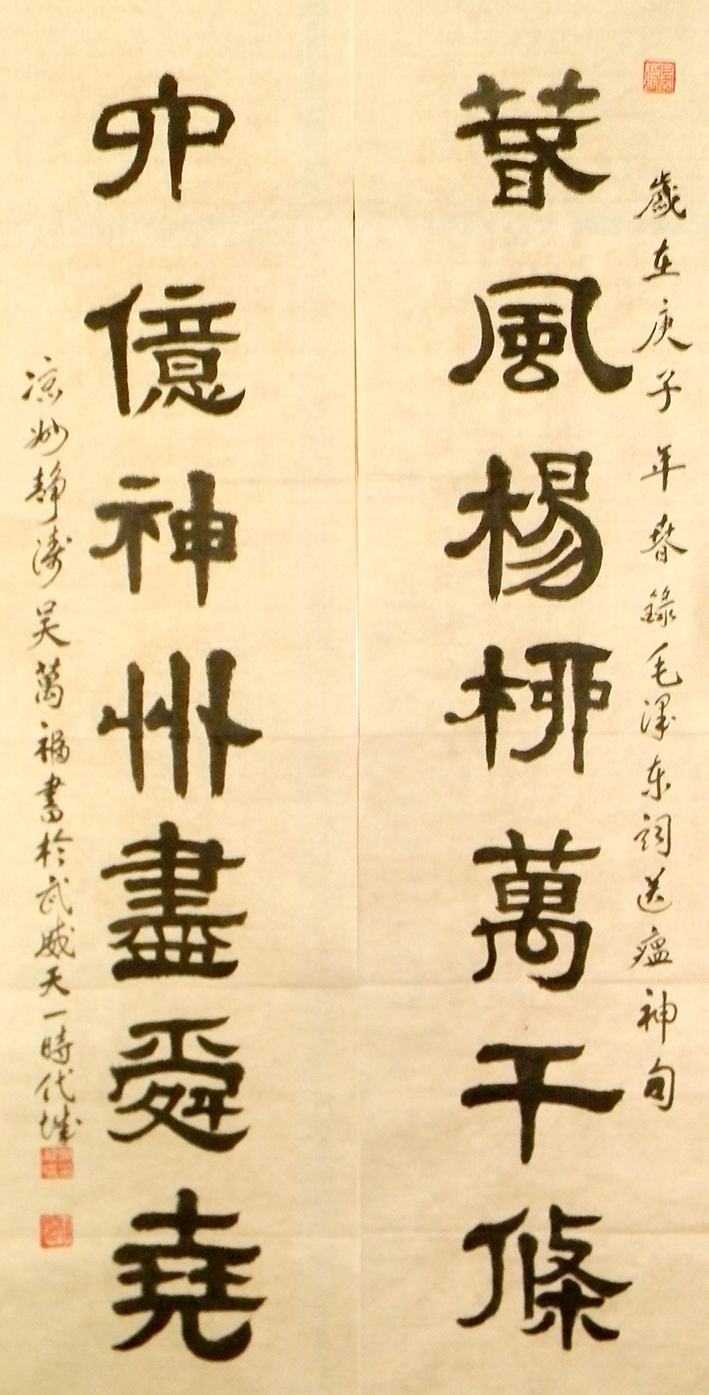 歲在庚子年春錄毛澤东詞送瘟神句
春風楊柳萬千條
六億神州盡舜堯
凉妙静涛吴萬福書於武威天一時代城